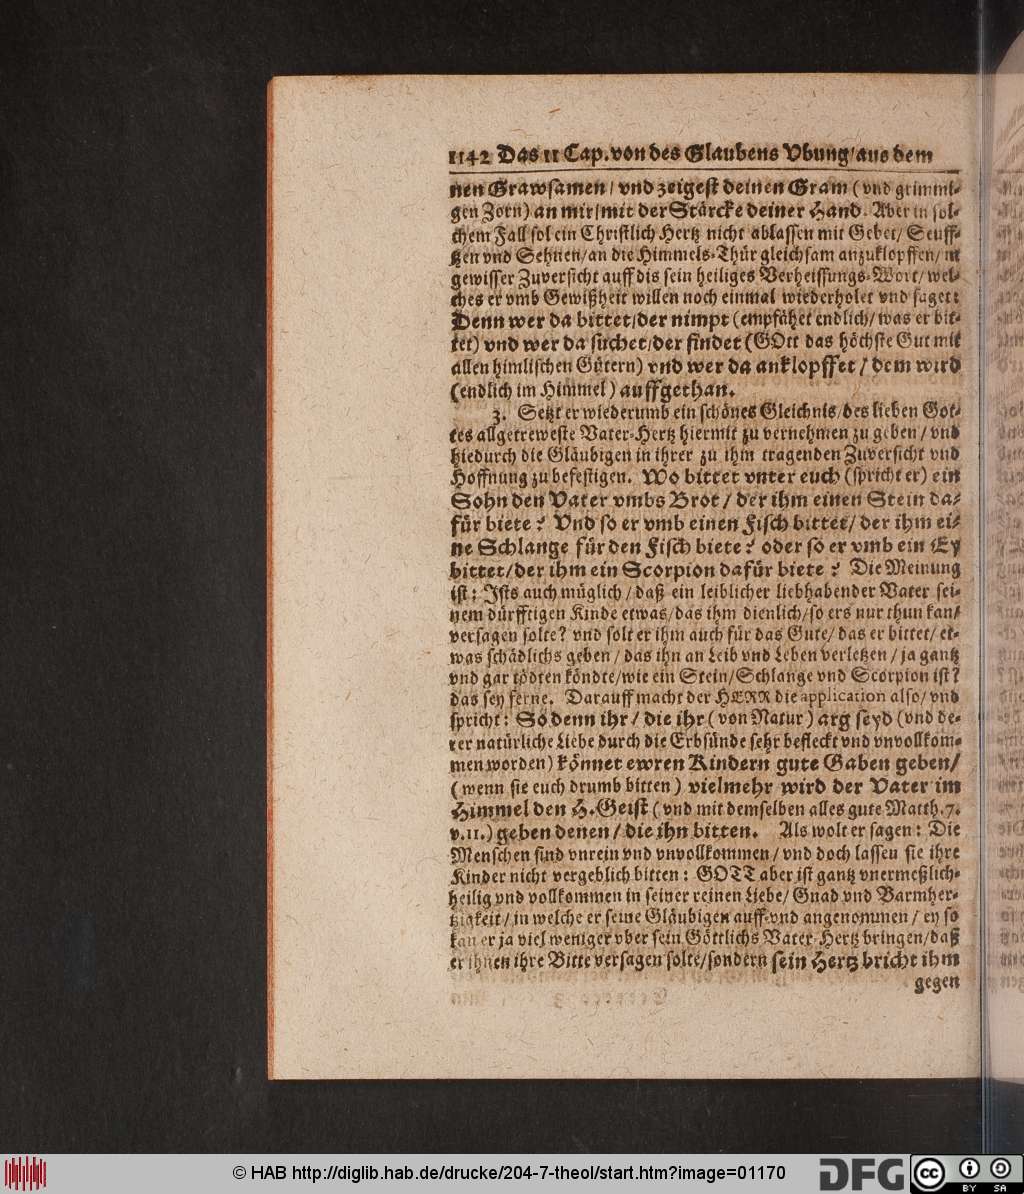 1142 Das 11 Cap. von des Glaubens Vbung/aus dem
nen Grawsamen/ vnd zeigest deinen Gram (vnd grimmi-
gen Zorn) an mir/mit der Stärcke deiner Hand. Aber in sol-
chem Fall sol ein Christlich Hertz nicht ablassen mit Gebet/ Seuff-
tzen vnd Sehnen/an die Himmels-Thür gleichsam anzuklopffen/in
gewisser Zuversicht auff dis sein heiliges Verheissungs-Wort/wel-
ches er vmb Gewißheit willen noch einmal wiederholet vnd saget:
Denn wer da bittet/der nimpt (empfähet endlich/was er bit-
tet) vnd wer da suchet/der findet (GOtt das höchste Gut mit
allen himlischen Gütern) vnd wer da anklopffet/dem wird
(endlich im Himmel) auffgethan.
3. Setzt er wiederumb ein schönes Gleichnis/des lieben Got-
tes allgetreweste Vater-Hertz hiermit zu vernehmen zu geben/vnd
hiedurch die Gläubigen in ihrer zu ihm tragenden Zuversicht vnd
Hoffnung zu befestigen. Wo bittet vnter euch (spricht er) ein
Sohn den Vater vmbs Brot/der ihm einen Stein da-
für biete? Vnd so er vmb einen Fisch bittet/der ihm ei-
ne Schlange für den Fisch biete? oder so er vmb ein Ey
bittet/der ihm ein Scorpion dafür biete? Die Meinung
ist: Ists auch müglich/daß ein leiblicher liebhabender Vater sei-
nem dürfftigen Kinde etwas/das ihm dienlich/so ers nur thun kan/
versagen solte? vnd solt er ihm auch für das Gute/das er bittet/et-
was schädlichs geben/das ihn an Leib vnd Leben verletzen/ja gantz
vnd gar tödten köndte/wie ein Stein/Schlange vnd Scorpion ist?
das sey ferne. Darauff macht der HERR die application also/vnd
spricht: So denn ihr/die ihr (von Natur) arg seyd (vnd de-
rer natürliche Liebe durch die Erbsünde sehr befleckt vnd vnvollkom-
men worden) könnet ewren Kindern gute Gaben geben/
(wenn sie euch drumb bitten) vielmehr wird der Vater im
Himmel den H. Geist (vnd mit demselben alles gute Matth. 7.
v. 11.) geben denen/die ihn bitten. Als wolt er sagen: Die
Menschen sind vnrein vnd vnvollkommen/vnd doch lassen sie ihre
Kinder nicht vergeblich bitten: GOTT aber ist gantz vnermeßlich-
heilig vnd vollkommen in seiner reinen Liebe/Gnad vnd Barmher-
tzigkeit/in welche er seine Gläubigen auff-vnd angenommen/ey so
kan er ja viel weniger vber sein Göttlichs Vater-Hertz bringen/daß
er ihnen ihre Bitte versagen solte/sondern sein Hertz bricht ihm
gegen
© HAB http://diglib.hab.de/drucke/204-7-theol/start.htm?image=01170
DFG
cc
BY SA